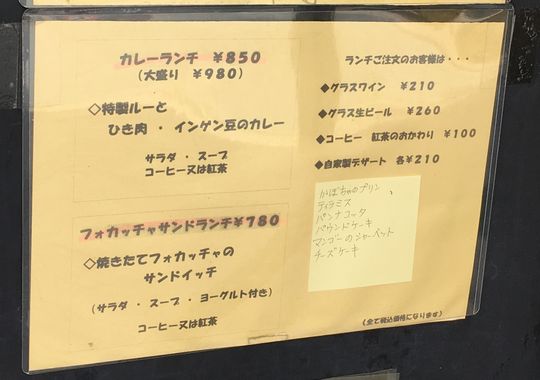 カレーランチ ￥850
(大盛り ￥980)
◇特製ルーと
ひき肉 ・ インゲン豆のカレー
サラダ ・ スープ
コーヒー又は紅茶
フォカッチャサンドランチ￥780
◇焼きたてフォカッチャの
サンドイッチ
(サラダ ・ スープ ・ ヨーグルト付き)
コーヒー又は紅茶
ランチご注文のお客様は・・・
◆グラスワイン ￥210
◆グラス生ビール ￥260
◆コーヒー 紅茶のおかわり ￥100
◆自家製デザート 各￥210
かぼちゃのプリン
ティラミス
パンナコッタ
パウンドケーキ
マンゴーのシャーベット
チーズケーキ
(全て税込価格になります)